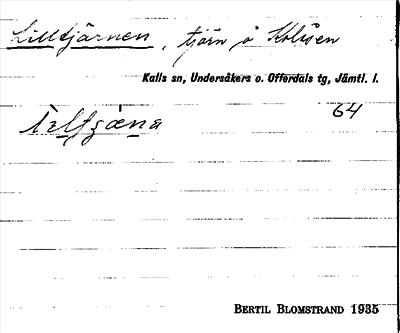 Lilltjärnen, tjärn å Kolåsen
Kalls sn, Undersåkers o. Offerdals tg, Jämtl. l.
64
BERTIL BLOMSTRAND 1935